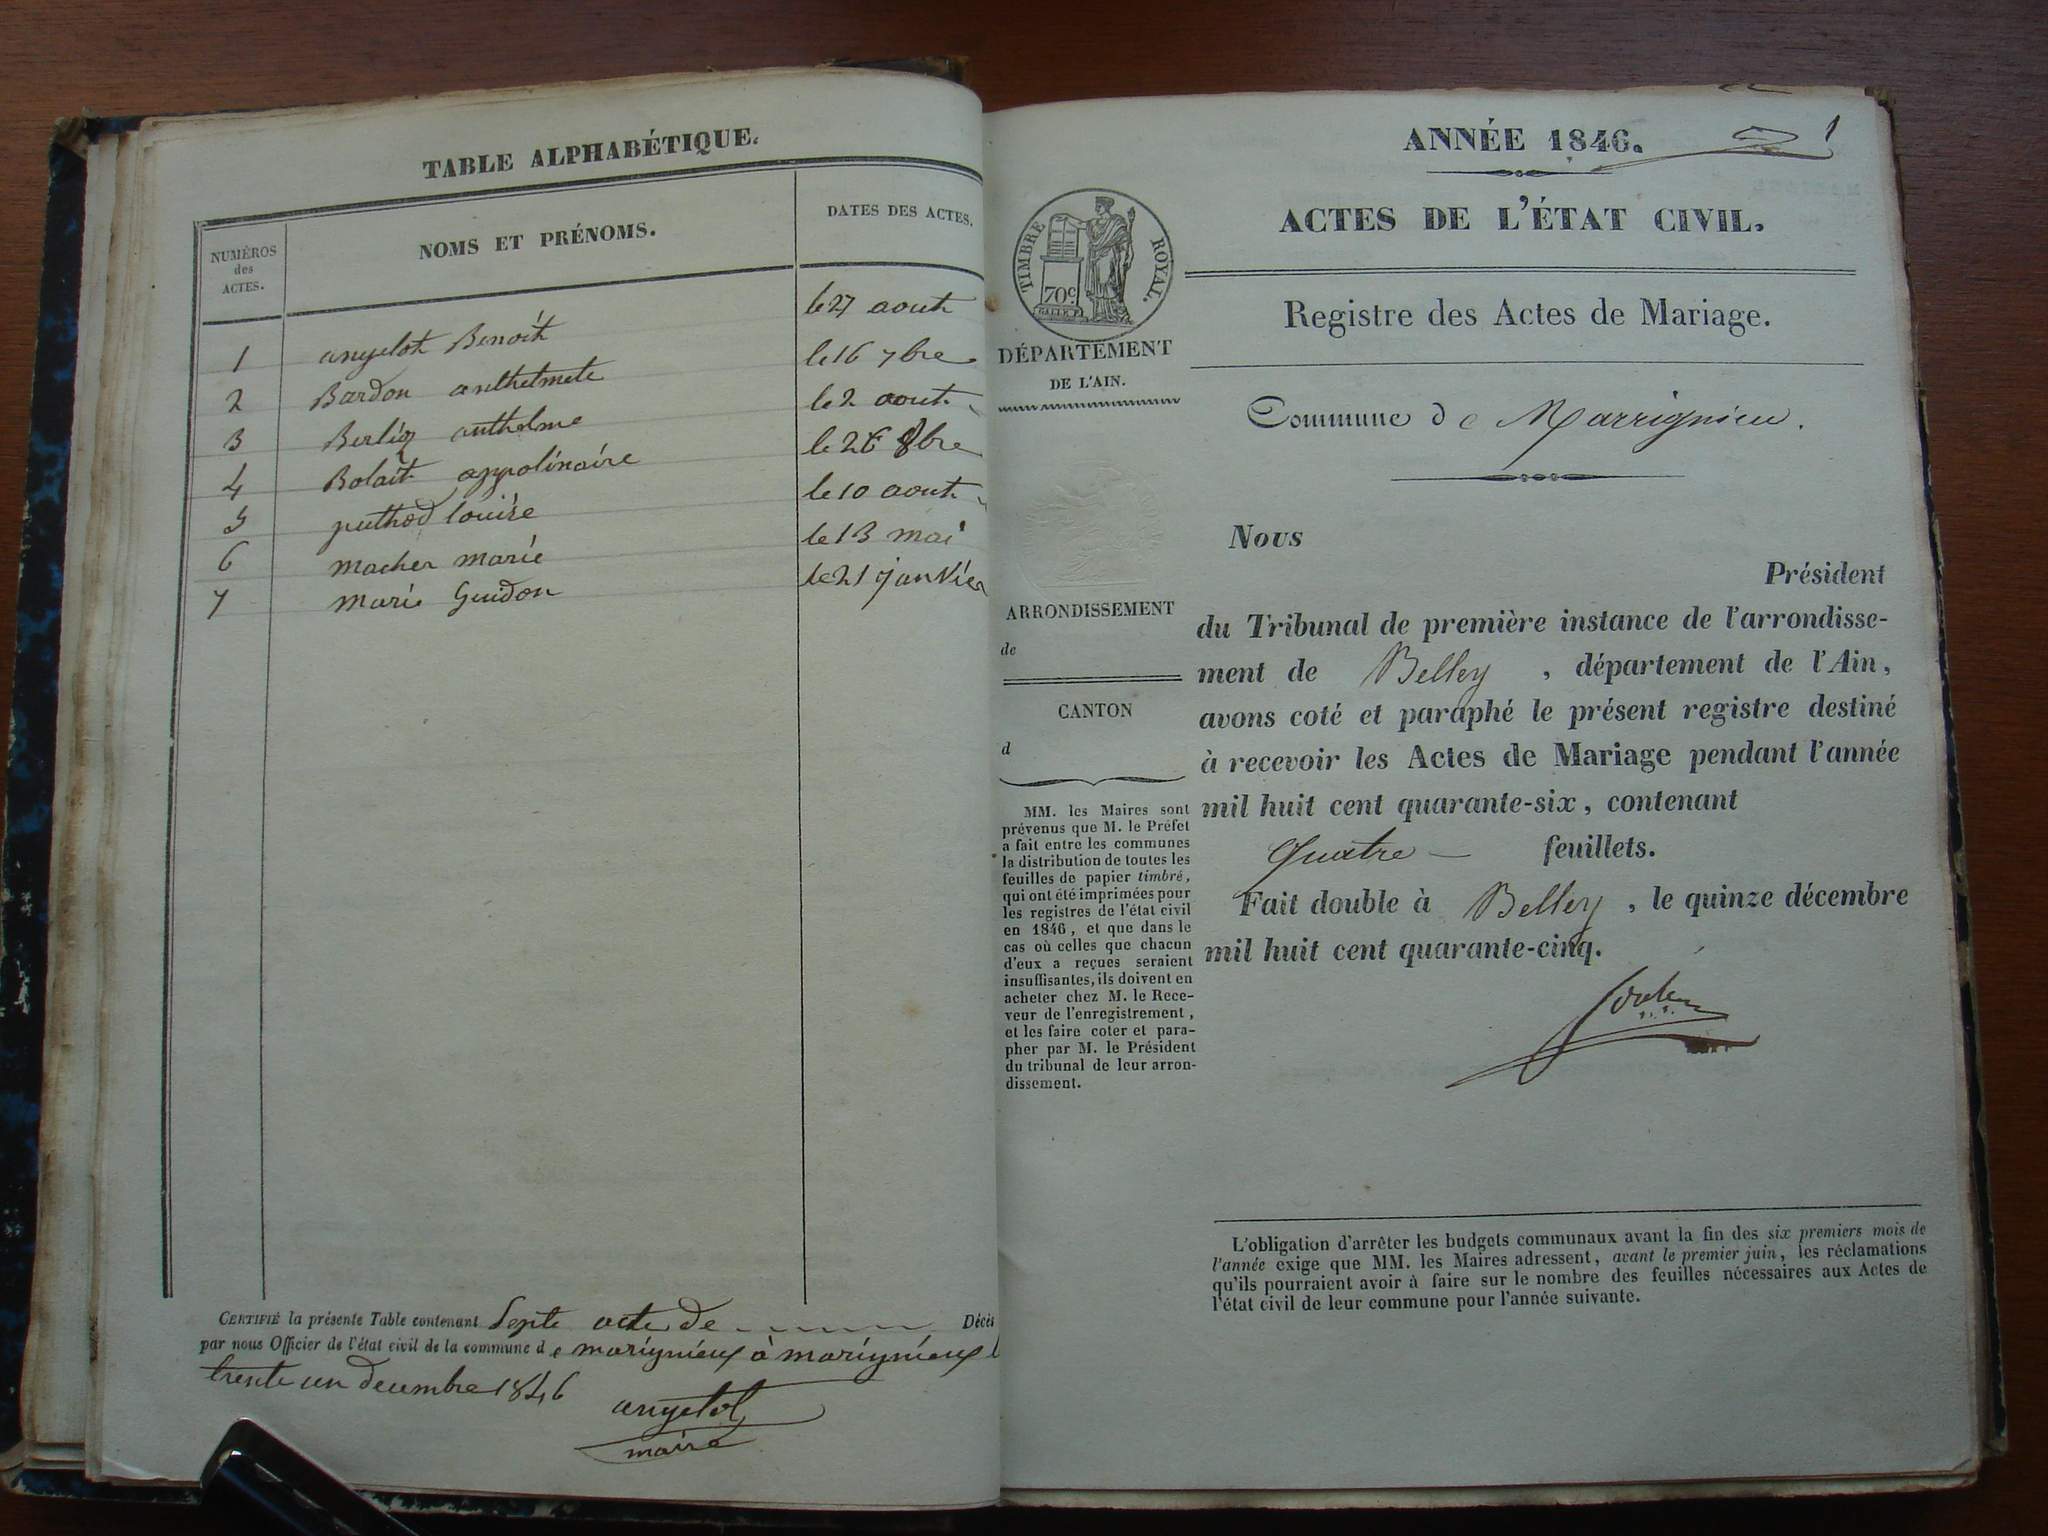 TABLE ALPHABÉTIQUE.
NUMÉROS
des
ACTES.
NOMS ET PRÉNOMS.
DATES DES ACTES.
1 angelot Benoit le 27 aout
2 Bardon anthelmete le 16 7bre
3 Berlioz anthelme le 2 aout
4 Bolait appolinaire le 26 8bre
5 puthod louise le 10 aout
6 macher marie le 13 mai
7 marie Guidon le 21 janvier
CERTIFIÉ la présente Table contenant Septe acte de Décès
par nous Officier de l'état civil de la commune de marignieux à marignieux l
trente un decembre 1846
angelot
maire
1
ANNÉE 1846.
ACTES DE L'ÉTAT CIVIL.
TIMBRE ROYAL.
70c.
Registre des Actes de Mariage.
DÉPARTEMENT
DE L'AIN.
Commune de Marrignieu.
Nous
Président
du Tribunal de première instance de l'arrondisse-
ment de Belley, département de l'Ain,
avons coté et paraphé le présent registre destiné
à recevoir les Actes de Mariage pendant l'année
mil huit cent quarante-six, contenant
Quatre feuillets.
Fait double à Belley, le quinze décembre
mil huit cent quarante-cinq.
ARRONDISSEMENT
de
CANTON
d
MM. les Maires sont
prévenus que M. le Préfet
a fait entre les communes
la distribution de toutes les
feuilles de papier timbré,
qui ont été imprimées pour
les registres de l'état civil
en 1846, et que dans le
cas où celles que chacun
d'eux a reçues seraient
insuffisantes, ils doivent en
acheter chez M. le Rece-
veur de l'enregistrement,
et les faire coter et para-
pher par M. le Président
du tribunal de leur arron-
dissement.
L'obligation d'arrêter les budgets communaux avant la fin des six premiers mois de
l'année exige que MM. les Maires adressent, avant le premier juin, les réclamations
qu'ils pourraient avoir à faire sur le nombre des feuilles nécessaires aux Actes de
l'état civil de leur commune pour l'année suivante.